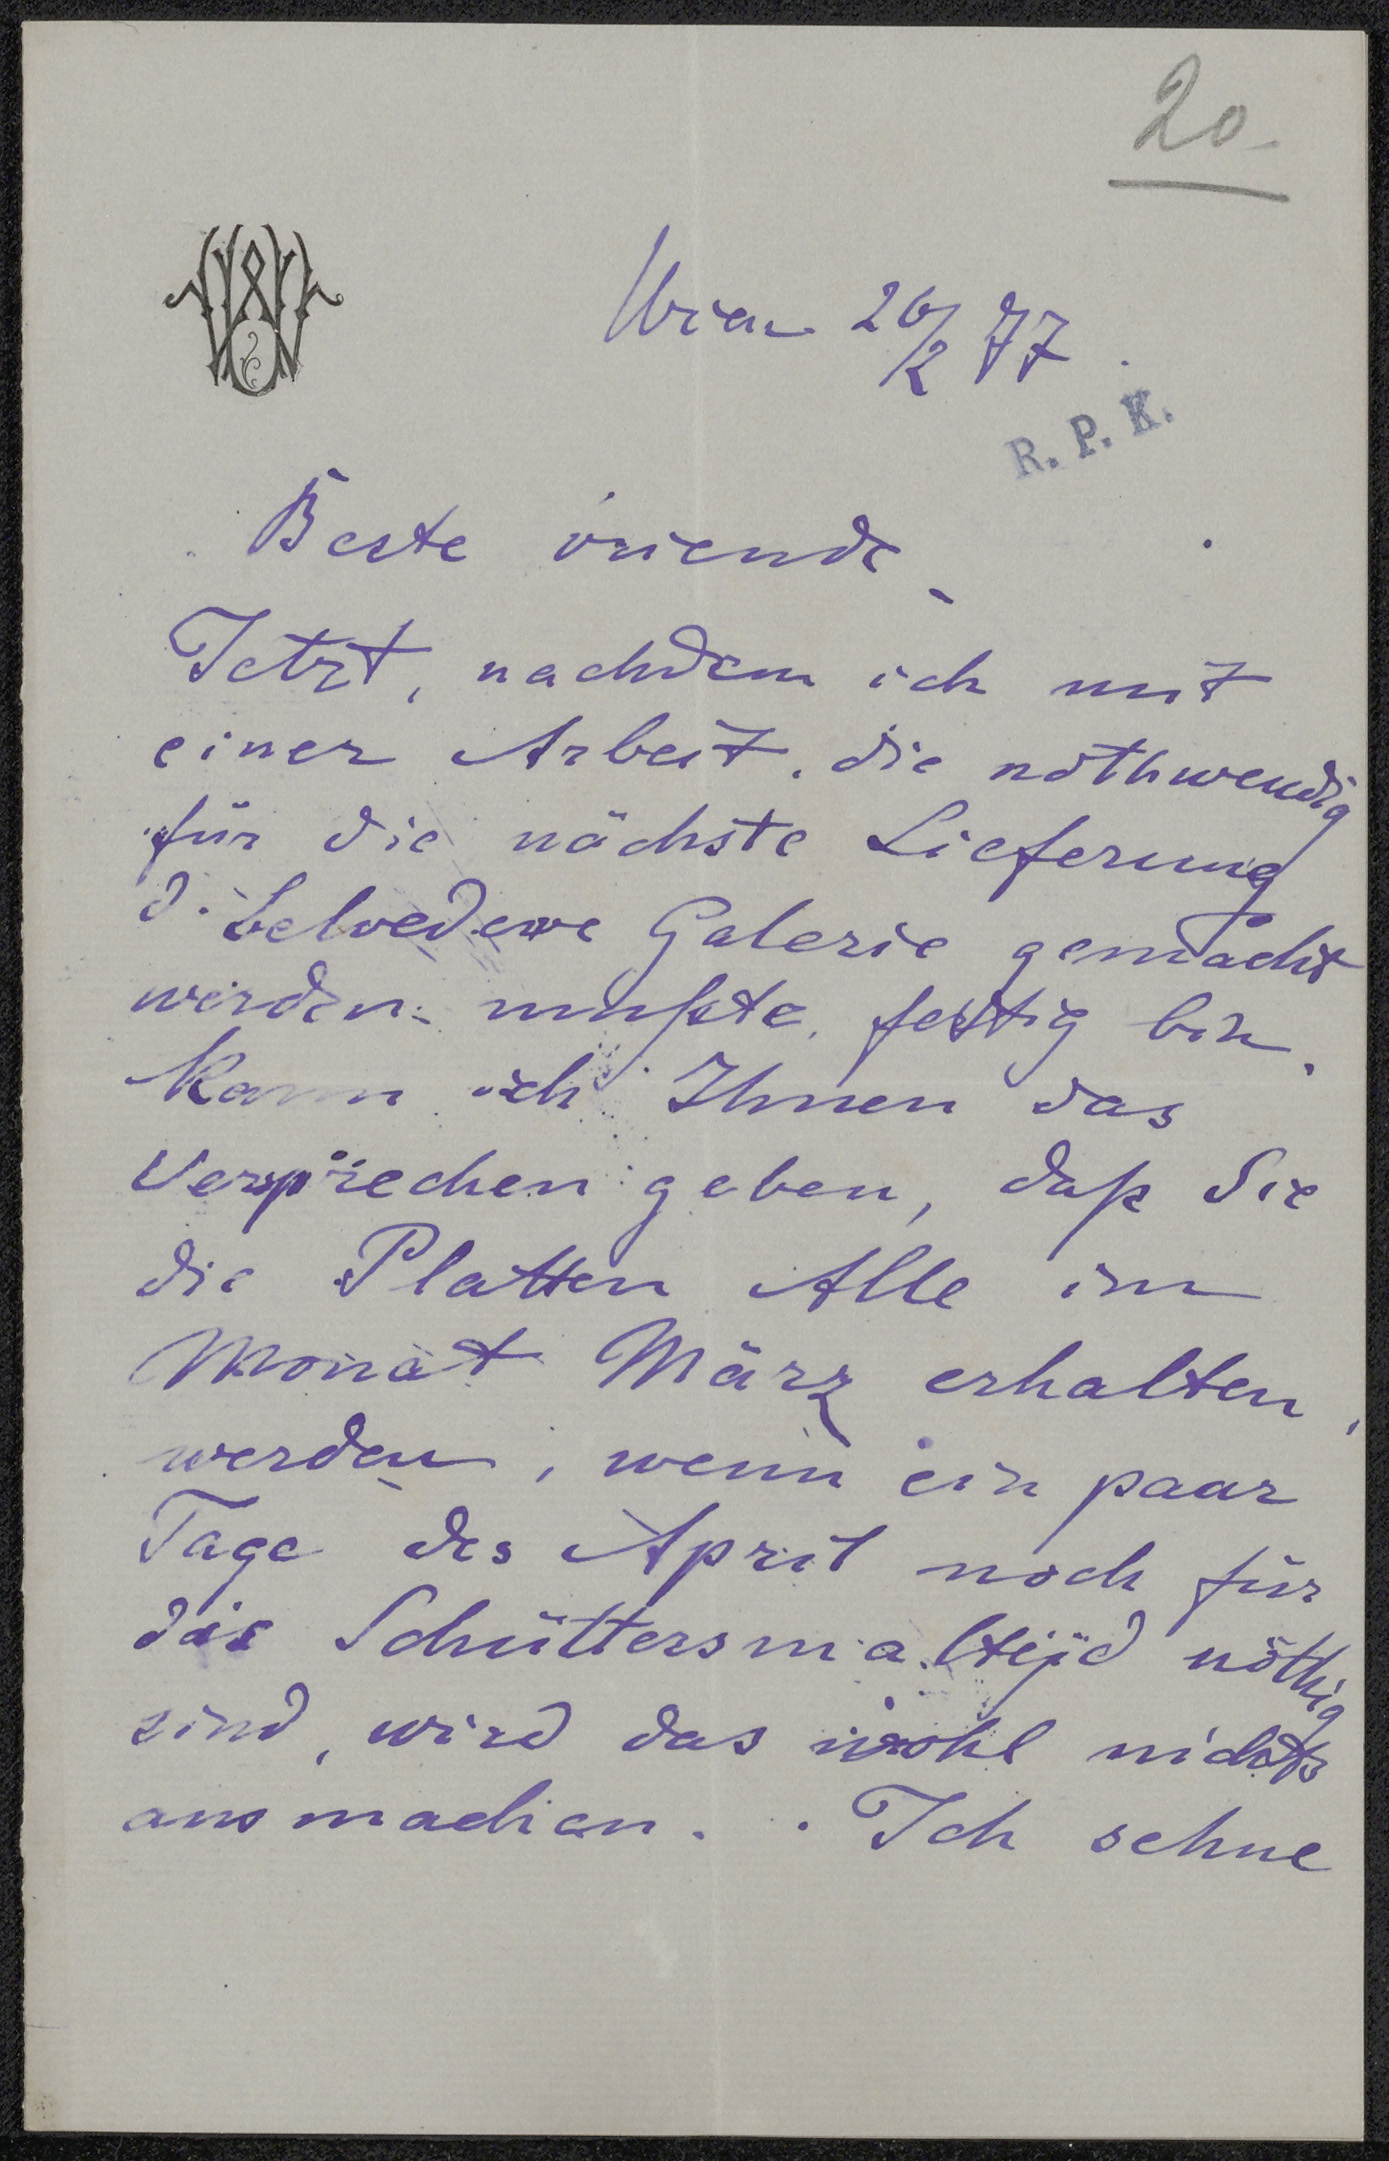 20
Wien 26/2 77.
R. P. K.
Beste vriend
Jetzt, nachdem ich mit
einer Arbeit, die nöthwendig
für die nächste Lieferung
d. Belvedere Galerie gemacht
werden mußte, fertig bin,
kann ich Ihnen das
Versprechen geben, daß Sie
die Platten Alle im
Monat März erhalten
werden, wenn ein paar
Tage des April noch für
die Schüttersmaltijd nöthig
sind, wird das wohl nichts
ausmachen. Ich sehne